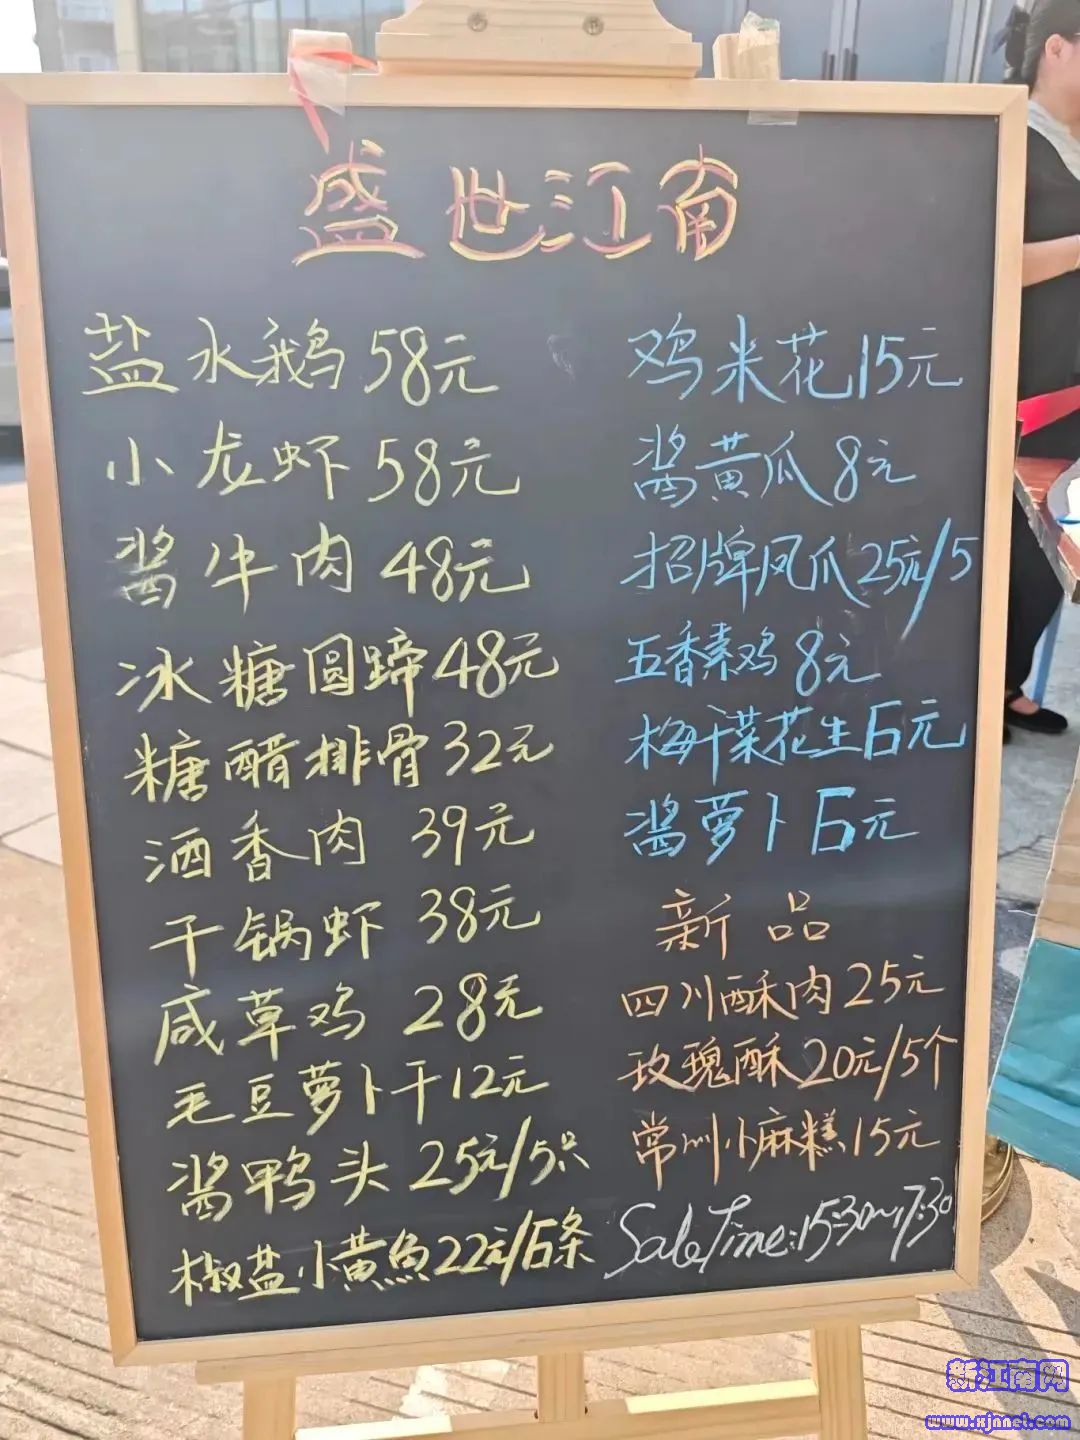 盛世江南
盐水鹅58元
小龙虾58元
酱牛肉48元
冰糖圆蹄48元
糖醋排骨32元
酒香肉 39元
干锅虾 38元
咸草鸡 28元
毛豆萝卜干12元
酱鸭头 25元/5只
椒盐小黄鱼22元/6条
鸡米花15元
酱黄瓜8元
招牌凤爪25元/5
五香素鸡8元
梅干菜花生6元
酱萝卜6元
新品
四川酥肉25元
玫瑰酥20元/5个
常州小麻糕15元
Sale Time:15:30~17:30
新江南网
www.xjnnet.com